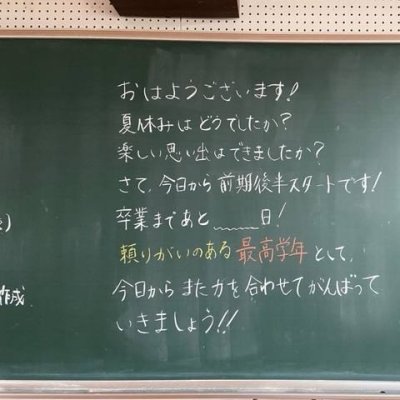 おはようございます!
夏休みはどうでしたか?
楽しい思い出はできましたか?
さて、今日から前期後半スタートです!
卒業まであと____日!
頼りがいのある最高学年として、
今日からまた力を合わせてがんばって
いきましょう!!
)
作成